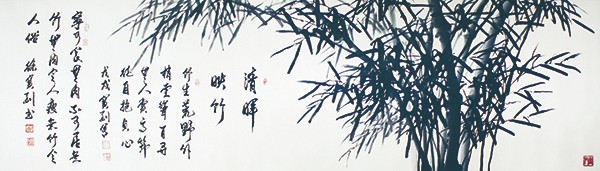 清暉
映竹
竹生荒野外
梢雲聳百尋
無人賞高節
徒自抱貞心
戊戌
寧可食無肉不可居無
竹無肉令人瘦無竹令
人俗